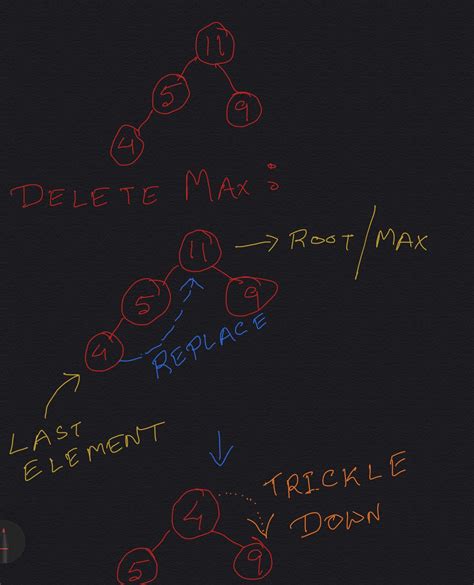 11
5
9
4
DELETE MAX:
11 → ROOT/MAX
5
9
4
REPLACE
LAST
ELEMENT
TRICKLE
4
DOWN
5
9